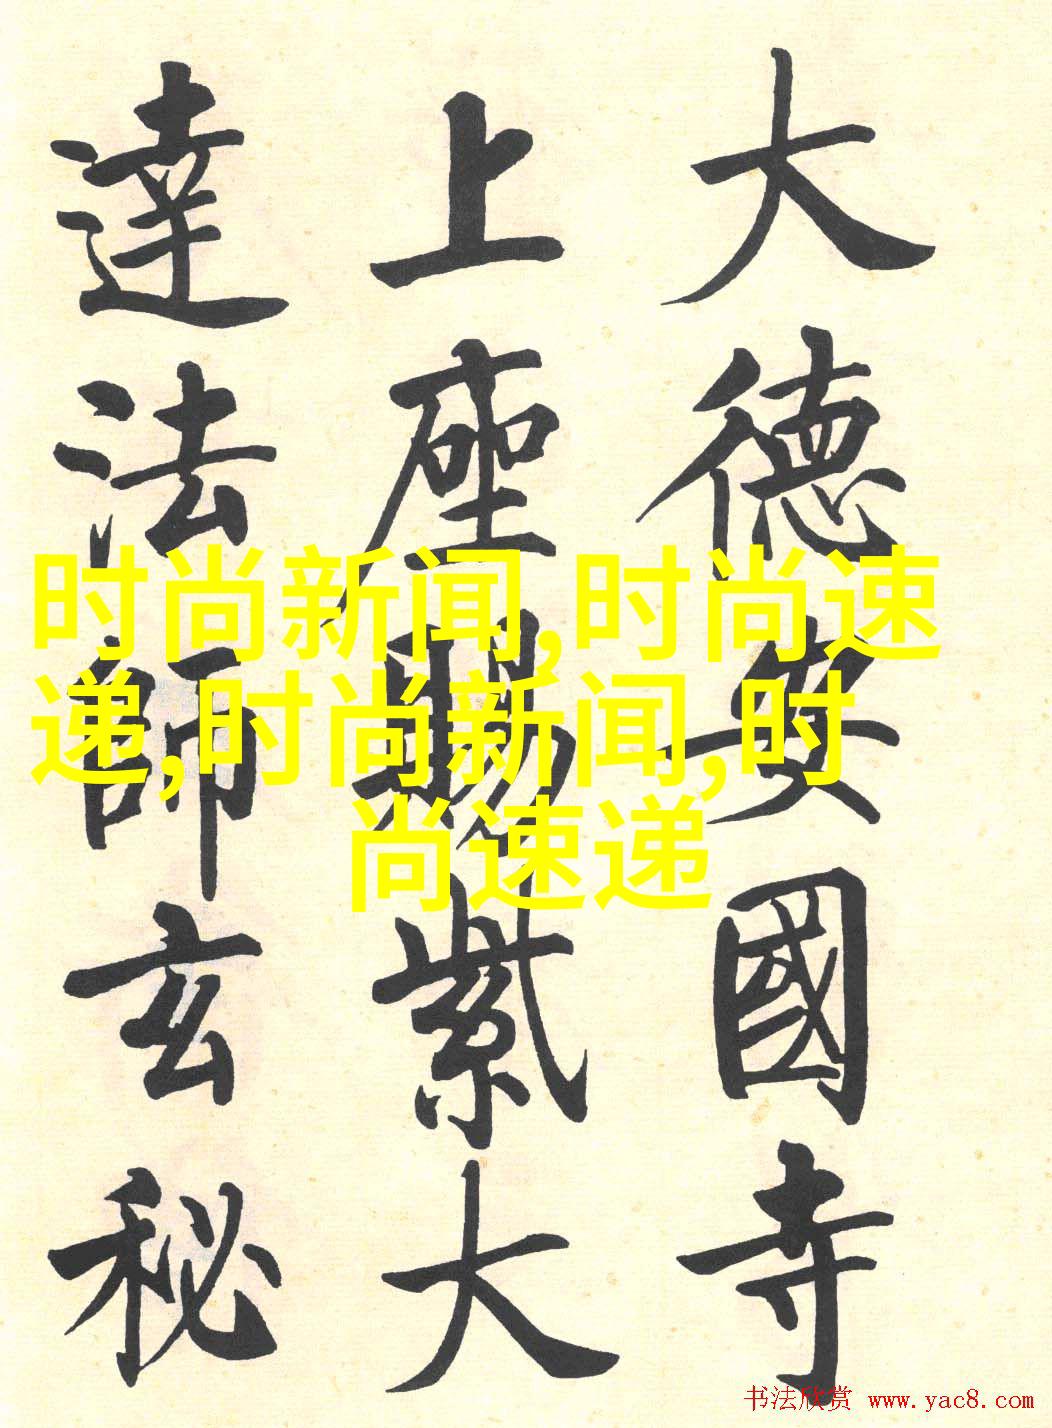 大德安國寺
上座賜紫大
達法師玄秘
时尚新闻,时尚速
递,时尚新闻,时
尚速递
书法欣赏 www.yac8.com